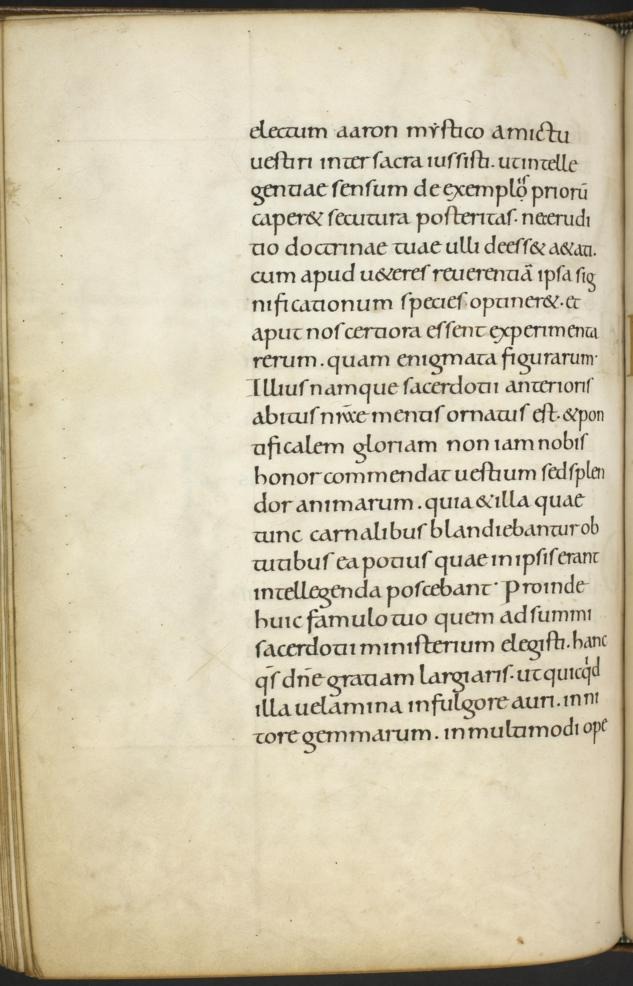 electum aaron mẏstico amictu
uestiri inter sacra iussisti. ut intelle
gentiae sensum de exemplo priorū
caper& secutura posteritas. ne erudi
tio doctrinae tuae ulli deess& a&ati.
cum apud u&eres reuerentiā ipsa sig
nificationum species optiner&. et
aput nos certiora essent experimenta
rerum. quam enigmata figurarum.
Illius namque sacerdotii anterioris
abitus nr̄ae mentis ornatus est. & pon
tificalem gloriam non iam nobis
honor commendat uestium sed splen
dor animarum. quia & illa quae
tunc carnalibus blandiebantur ob
tutibus ea potius quae in ipsis erant
intellegenda poscebant. Proinde
huic famulo tuo quem ad summi
sacerdotii ministerium elegisti. hanc
qs̄ dn̄e gratiam largiaris. ut quicqd
illa uelamina in fulgore auri. in ni
tore gemmarum. in multimodi ope